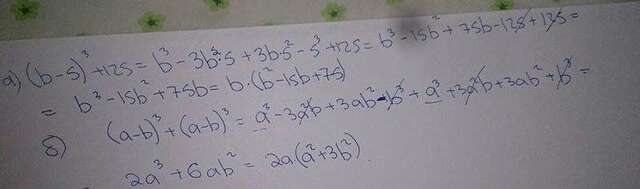 а) (b-5)³+125 = b³ - 3b²·5 + 3b·5² - 5³ + 125 = b³ - 15b² + 75b - 125 + 125 =
= b³ - 15b² + 75b = b·(b² - 15b + 75)
б) (a-b)³ + (a-b)³ = a³ - 3a²b + 3ab² - b³ + a³ + 3a²b + 3ab² + b³ =
2a³ + 6ab² = 2a(a² + 3b²)